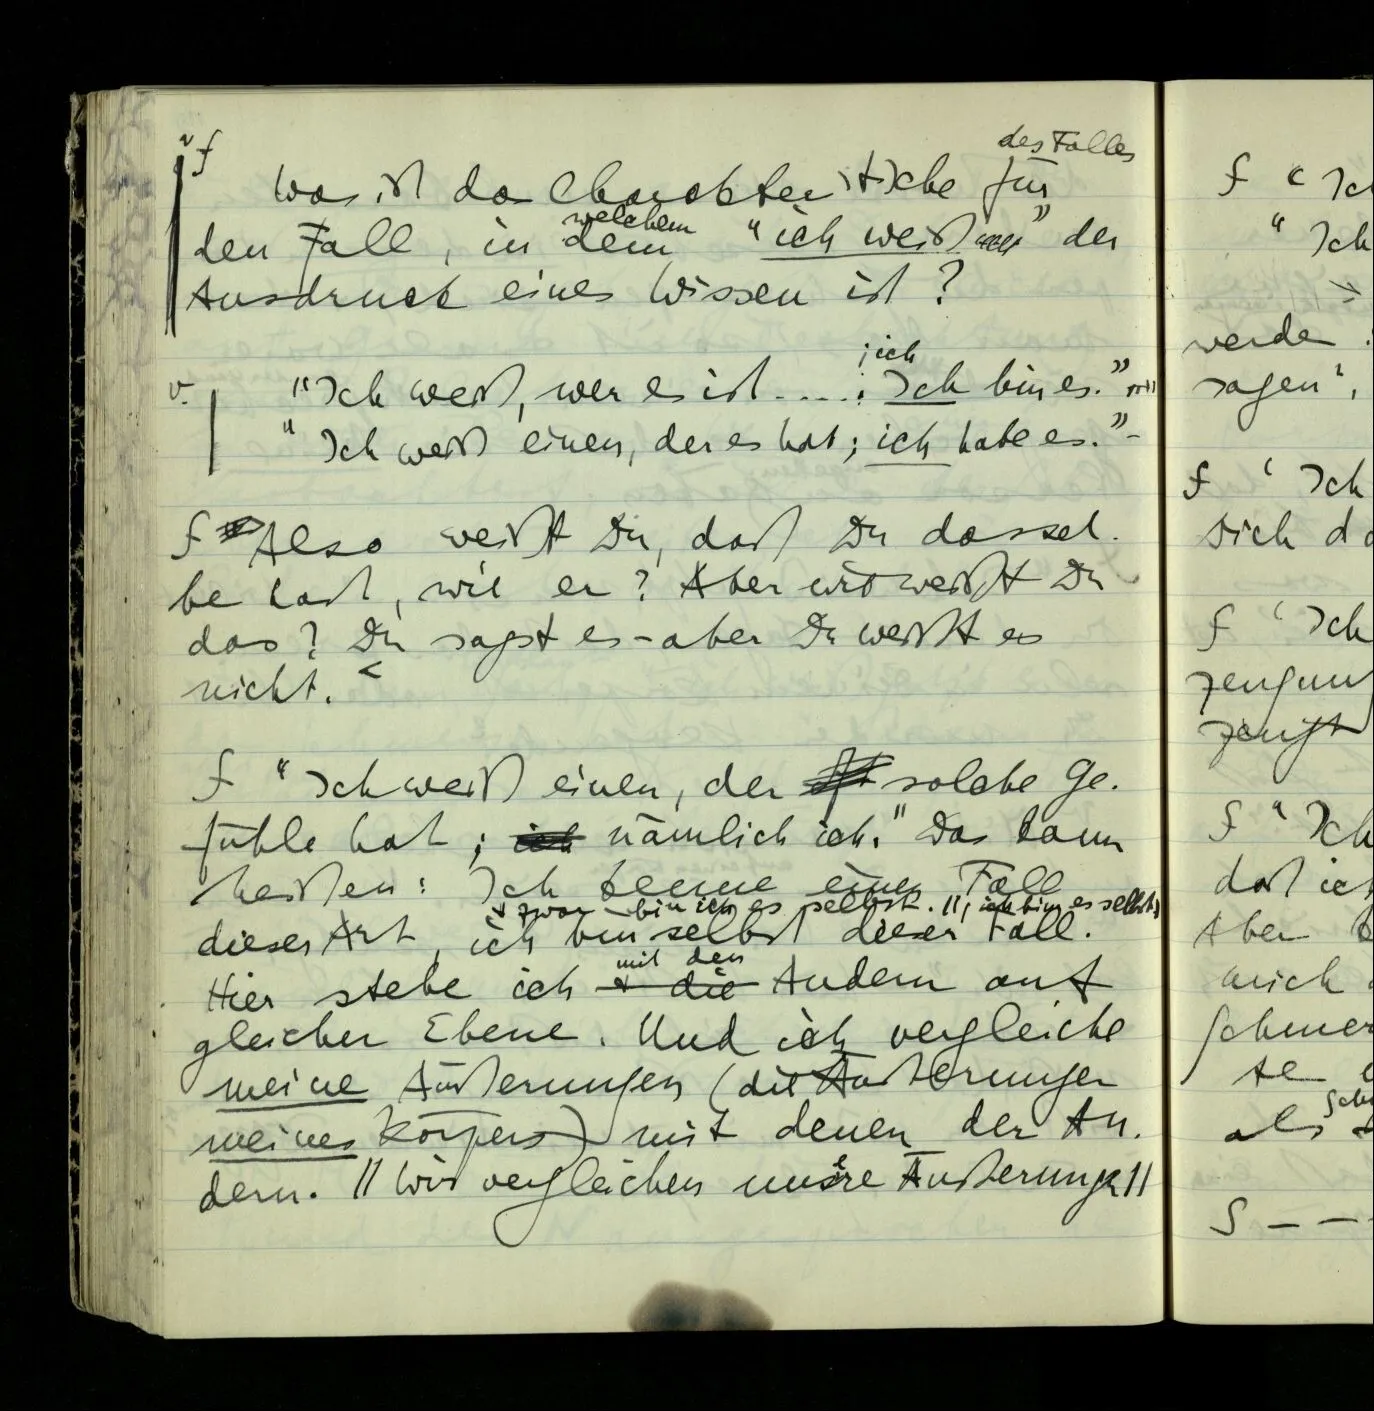 f
des Falles
Was ist das Charakteristische für
den Fall, in dem welchem "ich weiß" der
Ausdruck eines Wissen ist?
v.
"Ich weiß, wer es ist ....: Ich bin es."
; ich
"Ich weiß einen, der es hat; ich habe es." –
f Also weißt Du, daß Du dassel-
be hast, wie er? Aber wie weißt Du
das? Du sagst es – aber Du weißt es
nicht."
f "Ich weiß einen, der solche Ge-
fühle hat; ich nämlich ich." Das kann
heißen: Ich kenne einen Fall
zwar – bin ich es selbst. //, ich bin es selbst//
dieser Art, ich bin selbst dieser Fall.
mit den
Hier stehe ich die Andern auf
gleicher Ebene. Und ich vergleiche
meine Äußerungen (die Äußerungen
meines Körpers) mit denen der An-
dern. //Wir vergleichen unsere Äußerungen//
f "Ich
"Ich
werde
sagen",
f "Ich
sich da
f "Ich
zeugung
zeugt
f "Ich
daß ich
Aber
mich
schmer
te
als
f – –